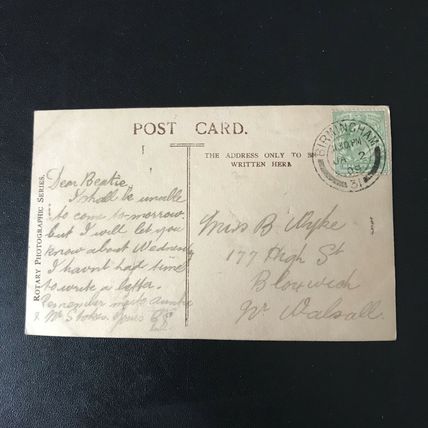 POST CARD.
THE ADDRESS ONLY TO BE
WRITTEN HERE
BIRMINGHAM
JA 2
09
31
ROTARY PHOTOGRAPHIC SERIES.
Dear Beatie
I shall be unable
to come to-morrow.
but I will let you
know about Wednesday
I havn't had time
to write a letter.
Remember me to Auntie
& Mr Stokes. Yours
Miss B Wyke
177 High St
Bloxwich
Nr Walsall.